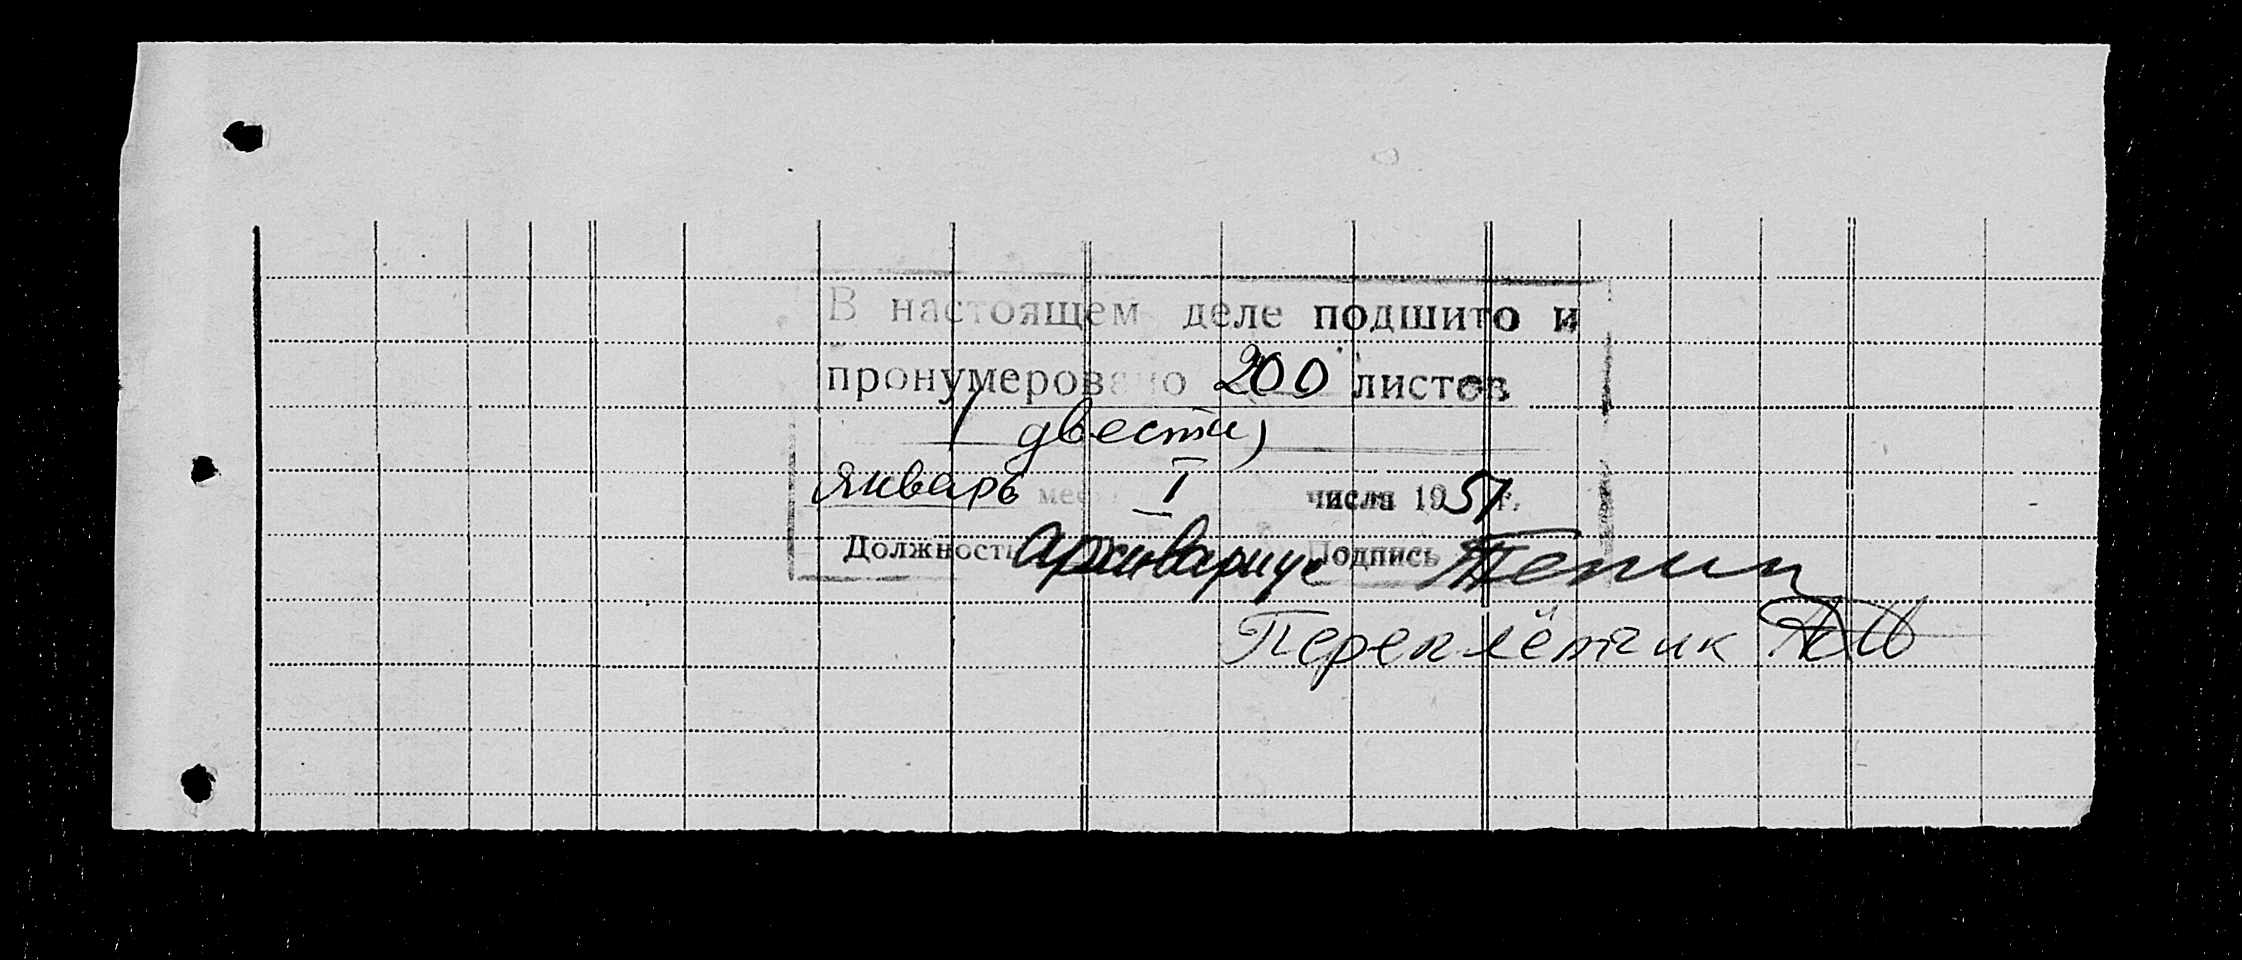 В настоящем деле подшито и
пронумеровано 200 листов
(двести)
январь мес I числа 1951 г.
Должность архивариус Подпись
Переплётчик